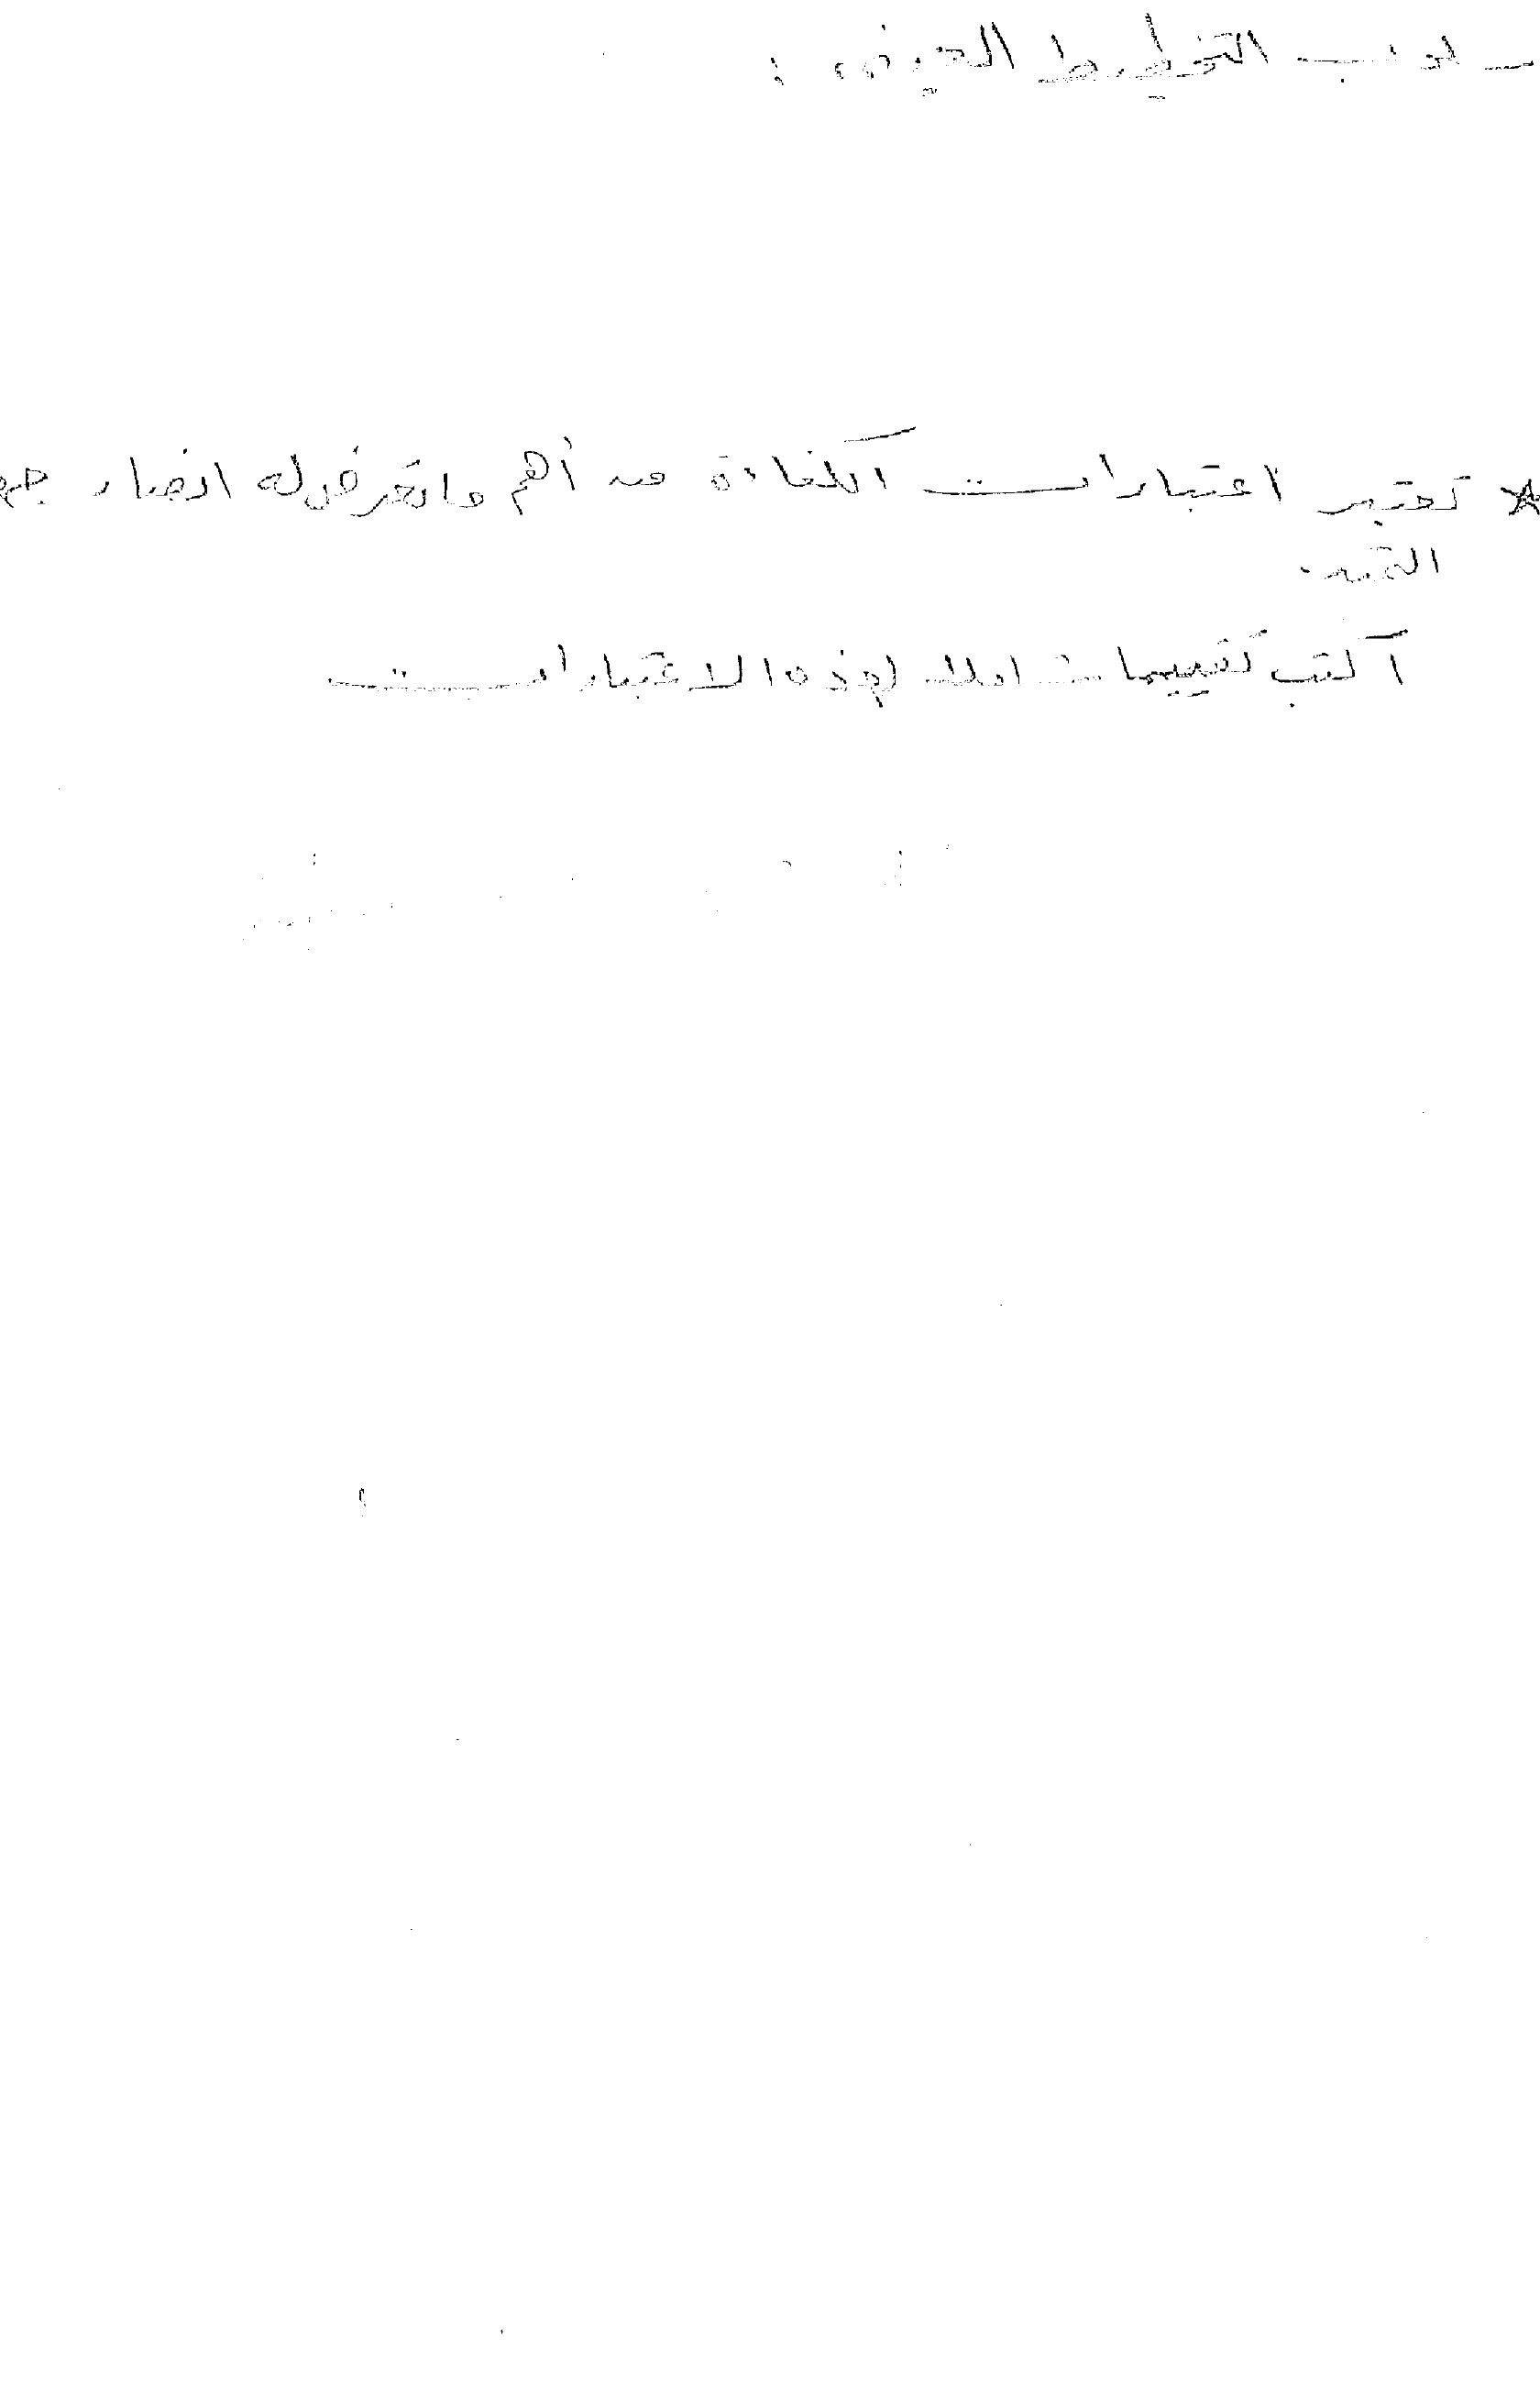 التخطيط العيني :
* تعتبر اعتبارات الكفاءة من أهم ما تعرض له انصار
اكتب تقييما شاملا لهذه الاعتبارات